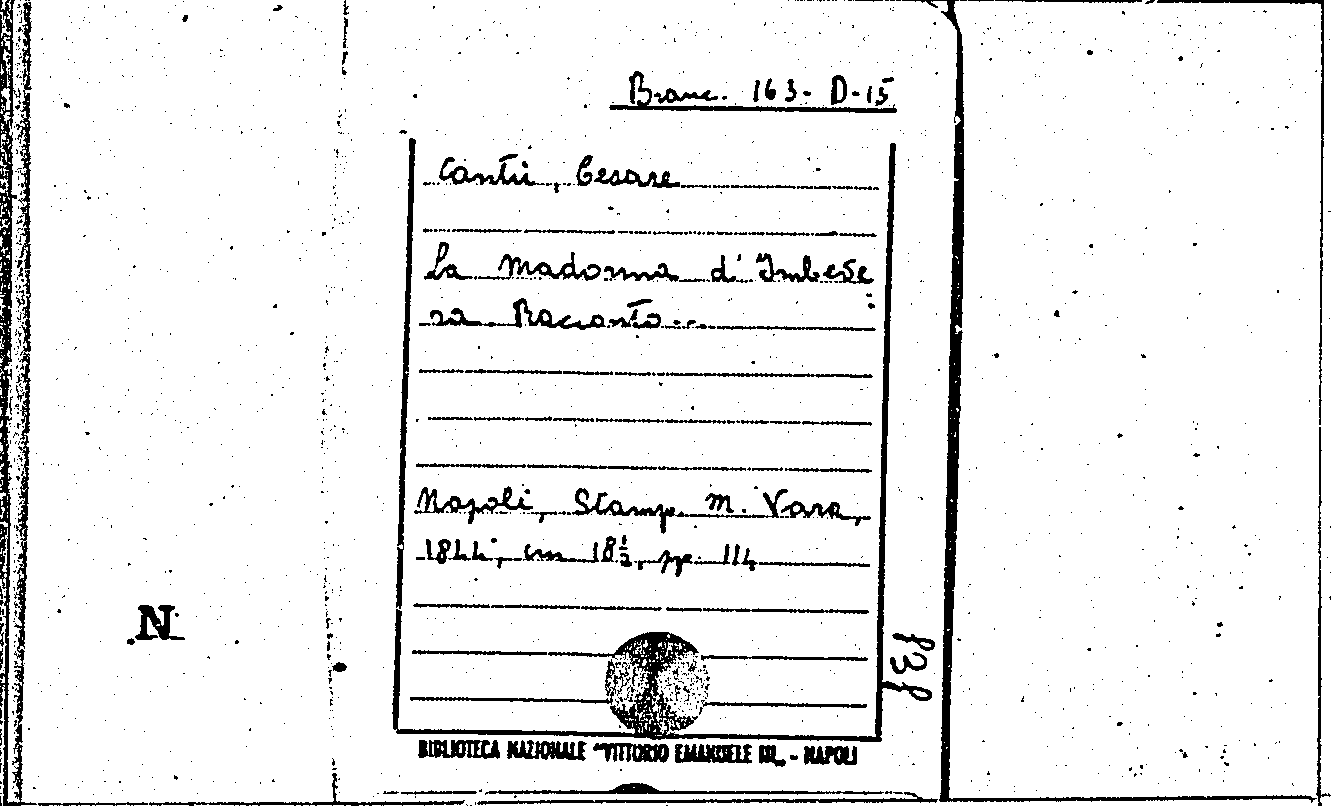 Branc. 163- D-15
Cantù, Cesare
La Madonna d'Imbeve
ra. Racconto...
Napoli, Stamp. M. Vara,
1844, cm 18½, pp. 114
N
BIBLIOTECA NAZIONALE "VITTORIO EMANUELE III" - NAPOLI